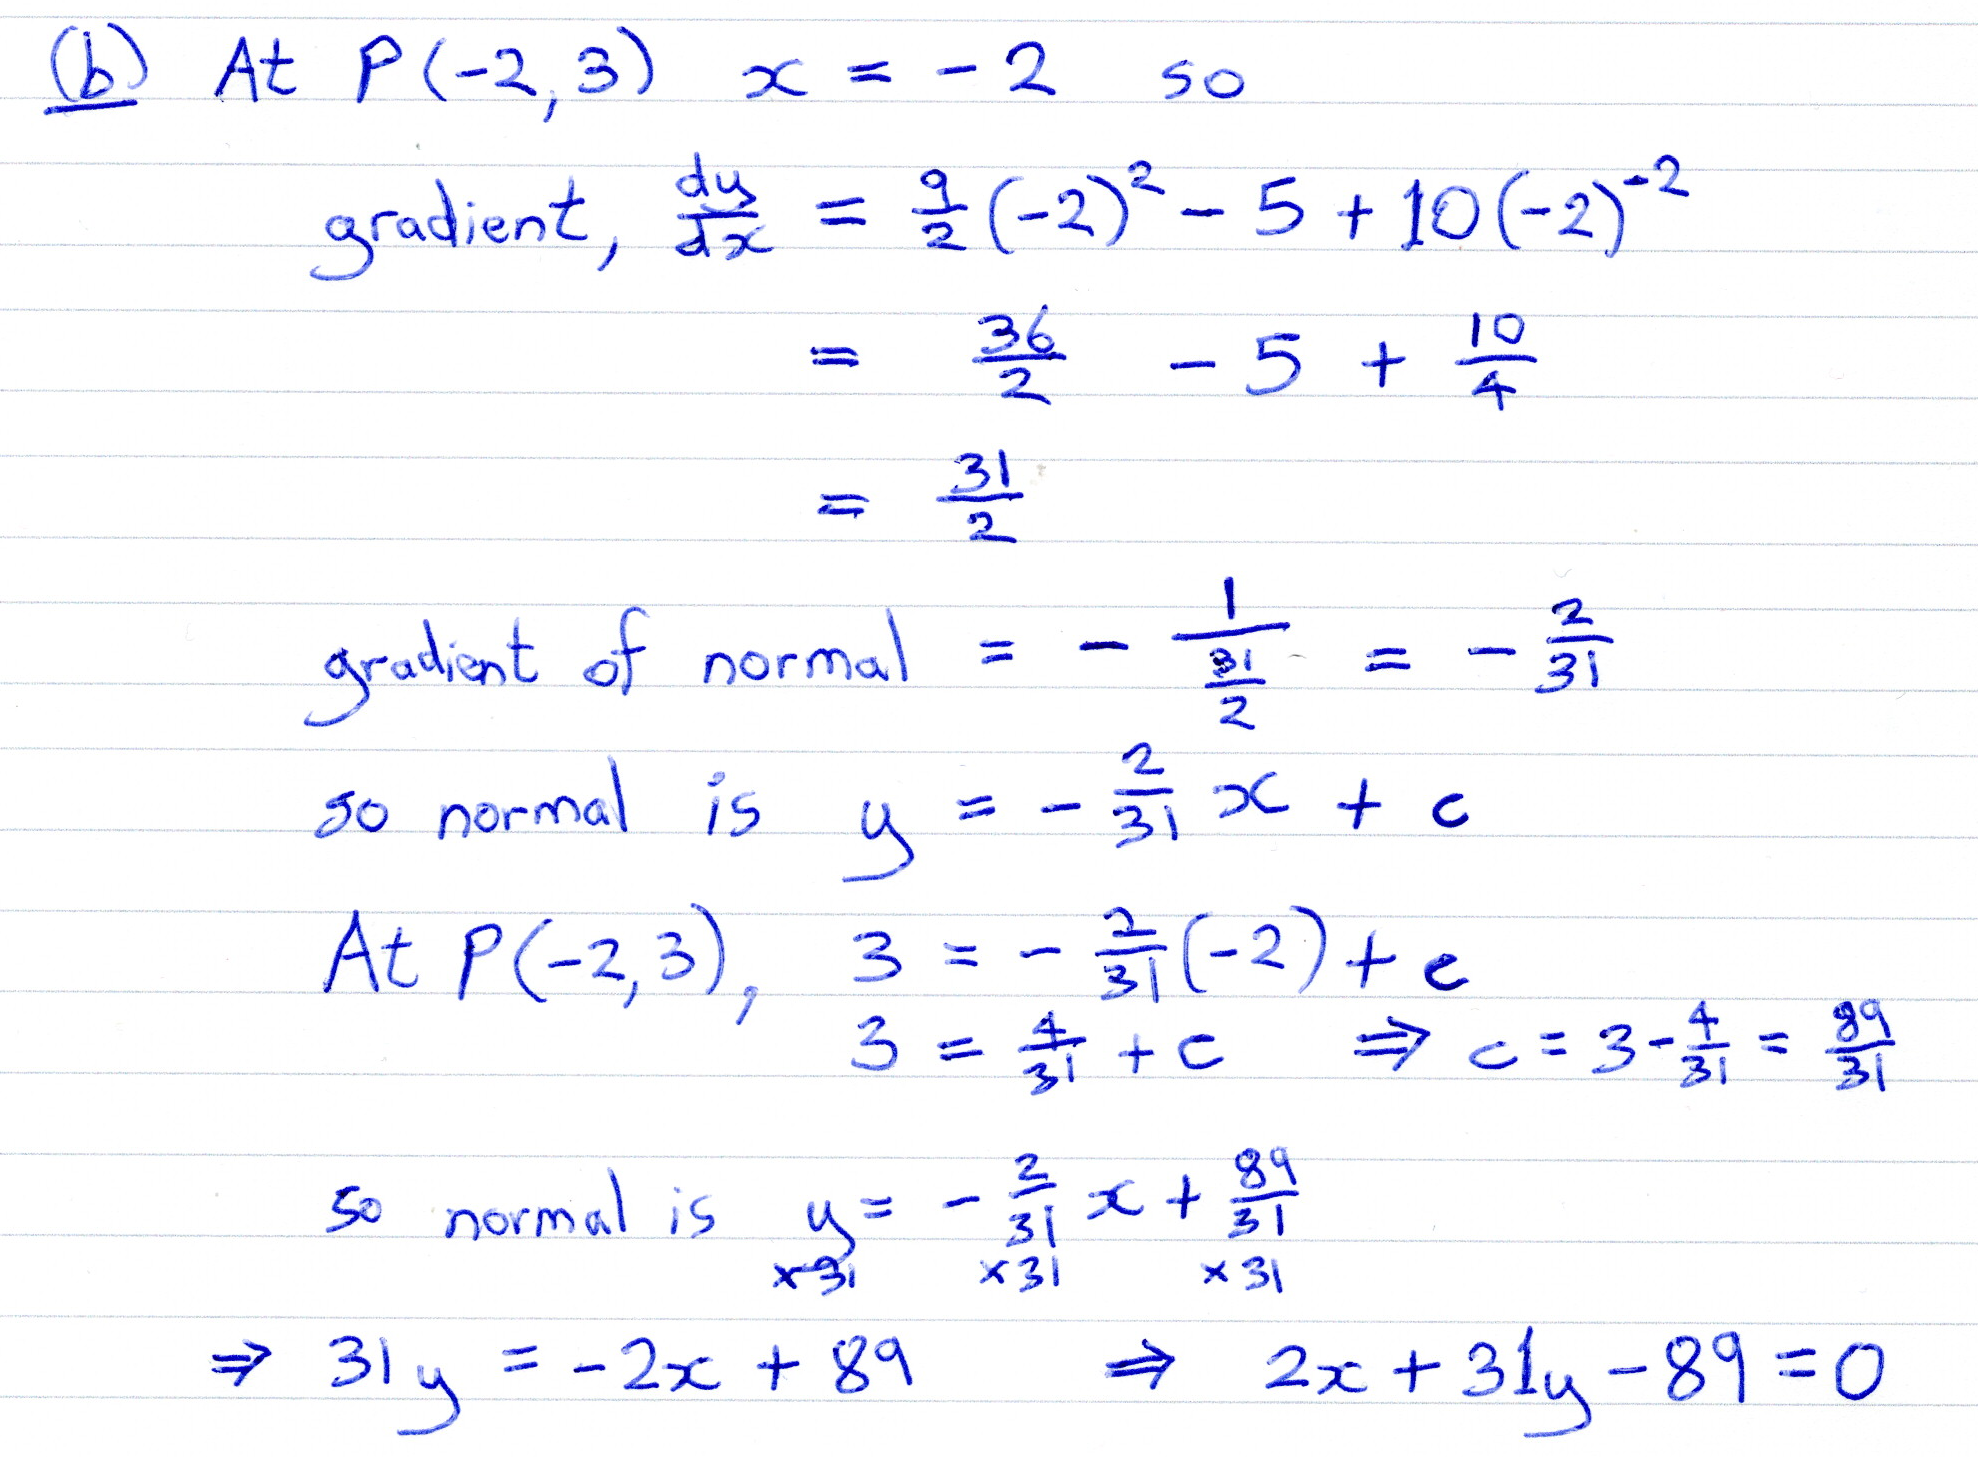 (b) At P(-2,3) x = -2 so
gradient, dy/dx = 9/2(-2)² - 5 + 10(-2)⁻²
= 36/2 - 5 + 10/4
= 31/2
gradient of normal = - 1/(31/2) = - 2/31
so normal is y = - 2/31 x + c
At P(-2,3), 3 = - 2/31(-2) + c
3 = 4/31 + c ⇒ c = 3 - 4/31 = 89/31
so normal is y = - 2/31 x + 89/31
×31 ×31 ×31
⇒ 31y = -2x + 89 ⇒ 2x + 31y - 89 = 0